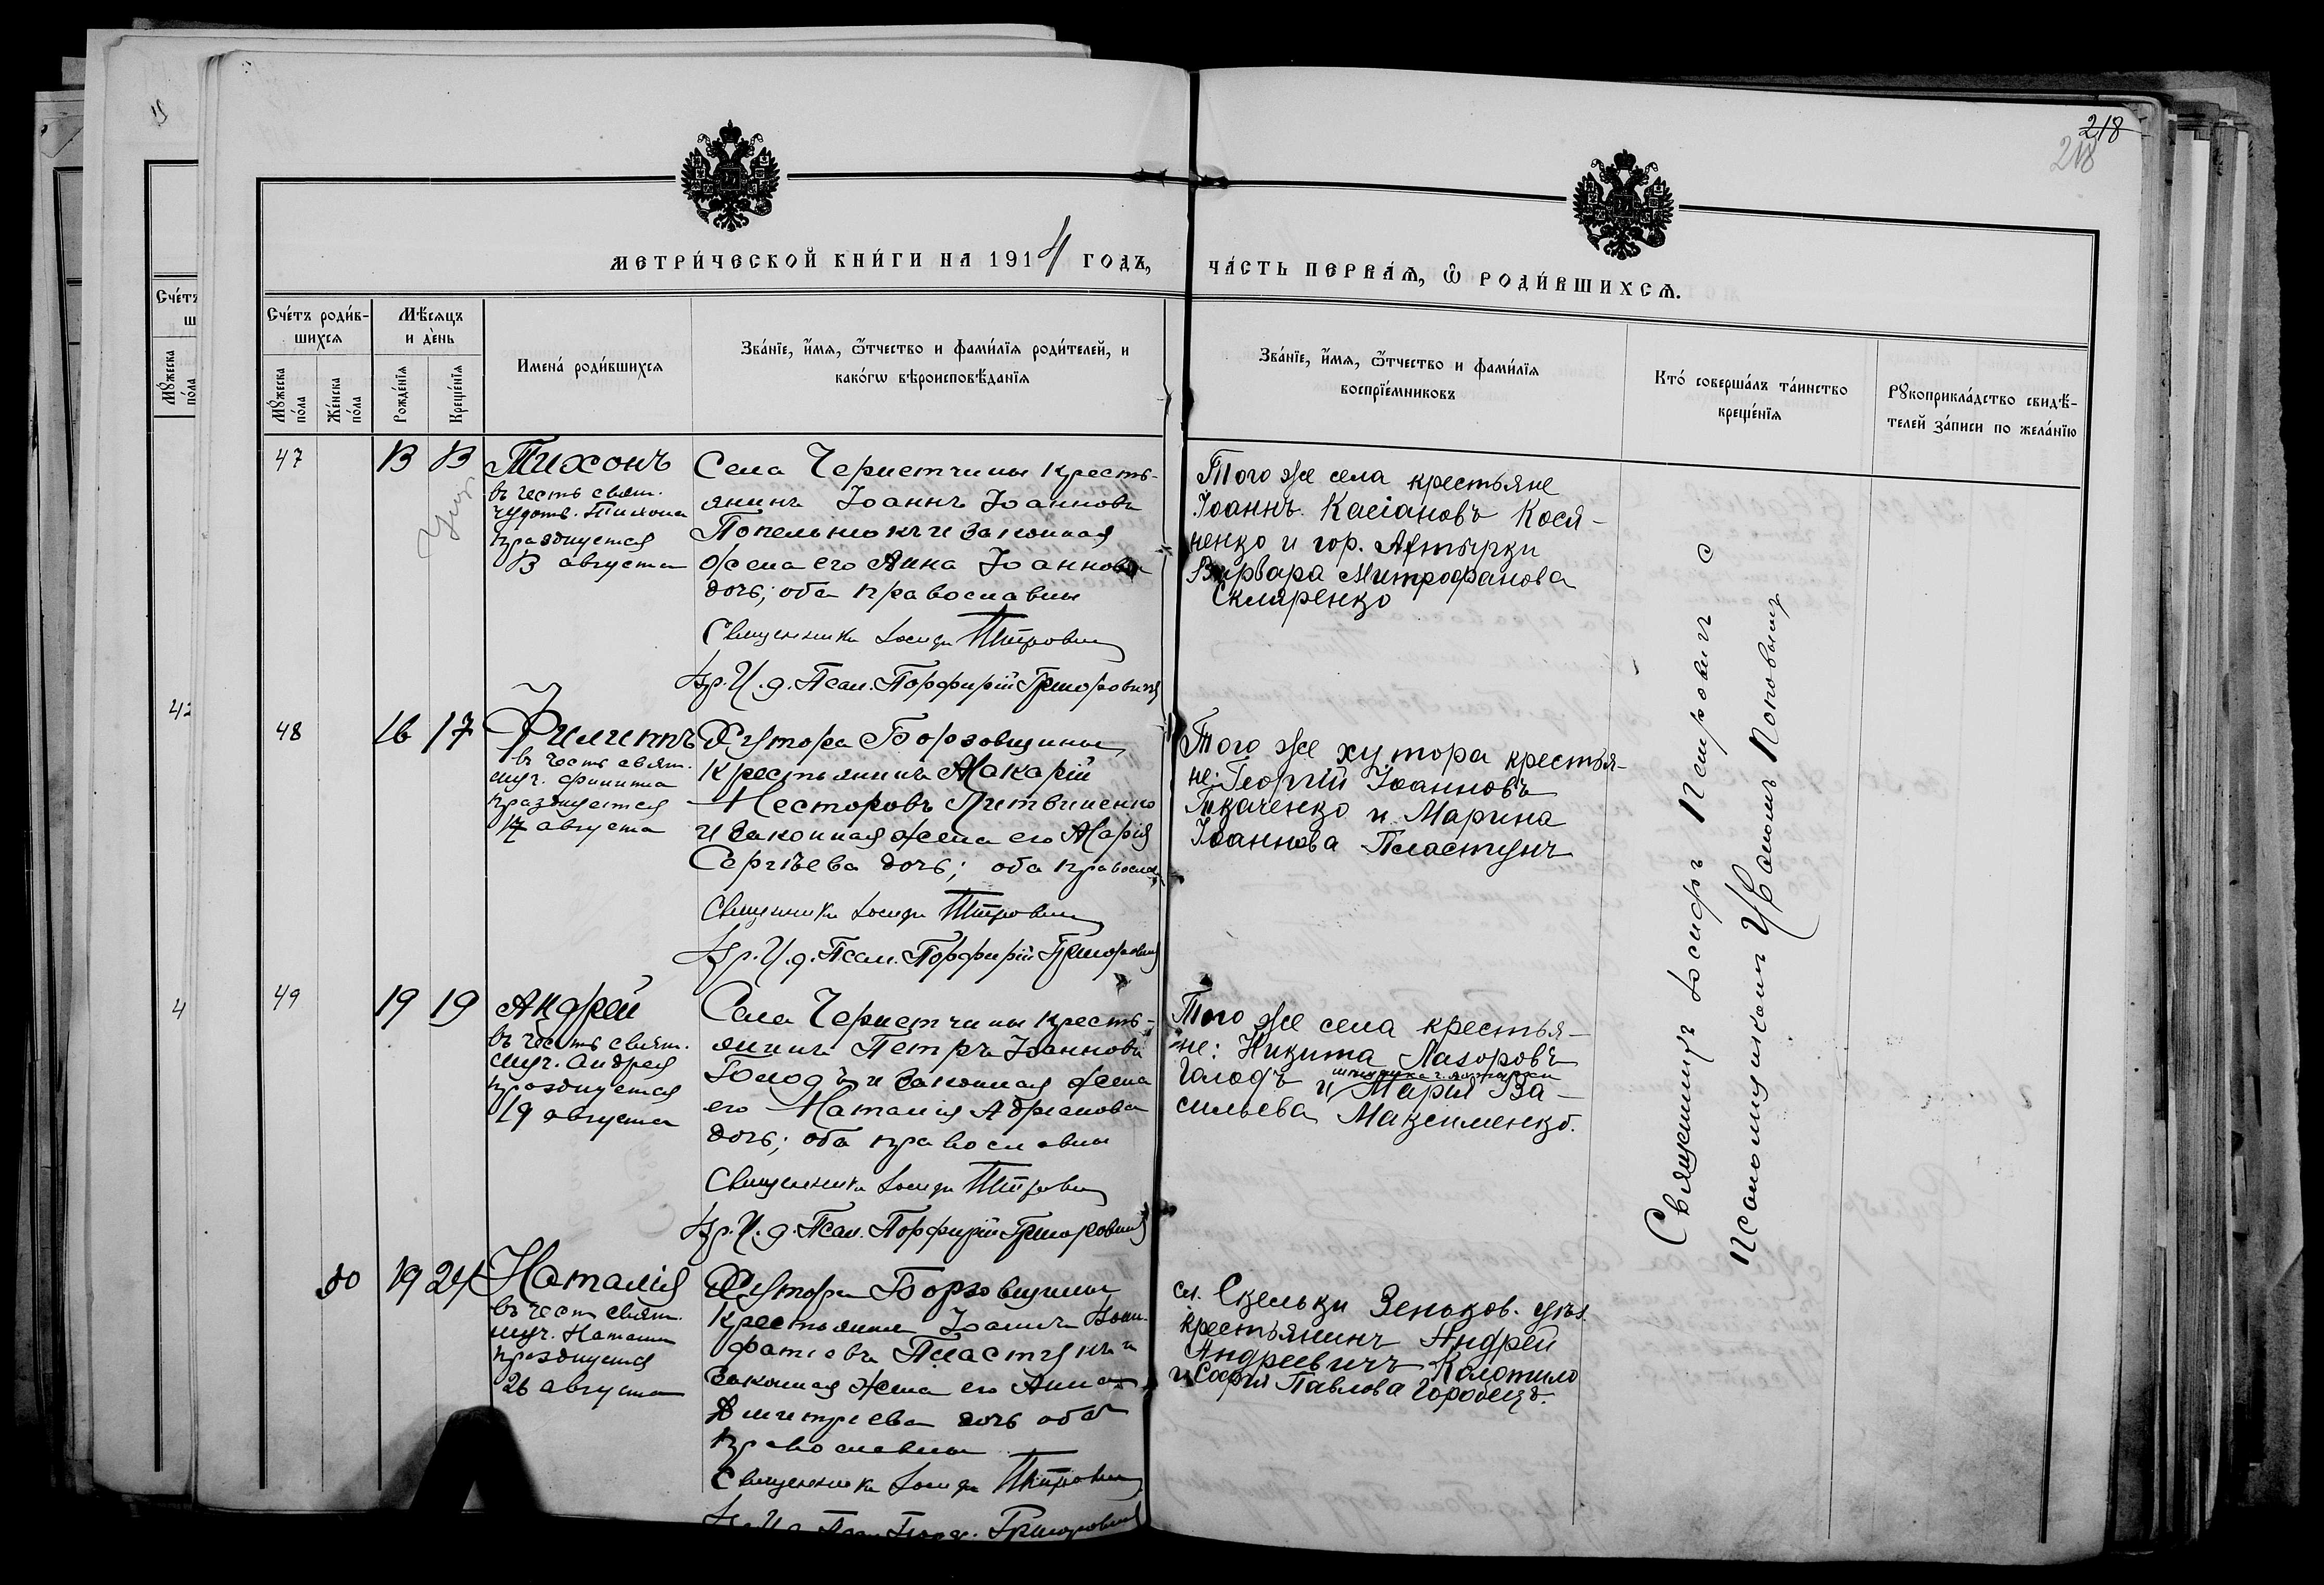 218
218
МЕТРИ́ЧЕСКОЙ КНИ́ГИ НА 1914 ГОДЪ,
ЧА́СТЬ ПЕРВА́Ѧ, Ѽ РОДИ́ВШИХСѦ.
Сче́тъ роди́в-
шихсѧ
Мѣ́сѧцъ
и де́нь
Имена́ роди́вшихсѧ
Зва́нїе, и́мѧ, ѻ҆́тчество и фами́лїѧ роди́телей, и
како́гѡ вѣроисповѣ́данїѧ
Зва́нїе, и́мѧ, ѻ҆́тчество и фами́лїѧ
воспрїе́мниковъ
Кто́ соверша́лъ та́инство
креще́нїѧ
Рꙋкоприкла́дство свидѣ́-
телей за́писи по жела́нїю
Мꙋ́жеска
по́ла
Же́нска
по́ла
Рожде́нїѧ
Креще́нїѧ
47
13
13
Тихонъ
въ честь свят.
чудотв. Тихона
празднуется
13 августа
Села Чернетчины кресть-
янинъ Іоаннъ Іоанновъ
Попельнюкъ и законная
жена его Анна Іоаннова
дочь; оба православны
Священникъ Іосифъ Петровичъ
Вр. И. д. Псал. Порфирій Григоровичъ
Того же села крестьяне
Іоаннъ Касіановъ Кося-
ненко и гор. Ахтырки
Варвара Митрофанова
Скляренко
48
16
17
Филиппъ
въ честь свят.
муч. Филиппа
празднуется
17 августа
Хутора Борзовщины
крестьянинъ Макарій
Несторовъ Литвиненко
и законная жена его Марія
Сергѣева дочь; оба правосл.
Священникъ Іосифъ Петровичъ
Вр. И. д. Псал. Порфирій Григоровичъ
Того же хутора крестья-
не: Георгій Іоанновъ
Ткаченко и Марина
Іоаннова Пластунъ
49
19
19
Андрей
въ честь свят.
муч. Андрея
празднуется
19 августа
Села Чернетчины кресть-
янинъ Петръ Іоанновъ
Голодъ и законная жена
его Наталія Адріанова
дочь; оба православны
Священникъ Іосифъ Петровичъ
Вр. И. д. Псал. Порфирій Григоровичъ
Того же села крестья-
не: Никита Лазоровъ
Голодъ и Марія Ва-
сильева Максименко.
50
19
24
Наталія
въ честь свят.
муч. Наталіи
празднуется
26 августа
Хутора Борзовщины
крестьянинъ Іоаннъ Вони-
фатіевъ Пластунъ и
законная жена его Анна
Димитріева дочь оба
православны
Священникъ Іосифъ Петровичъ
Вр. И. д. Псал. Порф. Григоровичъ
сл. Скельки Зеньков. уѣз.
крестьянинъ Андрей
Андреевичъ Колотило
и Софія Павлова Горобецъ.
Священникъ Іосифъ Петровичъ с
псаломщикомъ Іваномъ Поповымъ